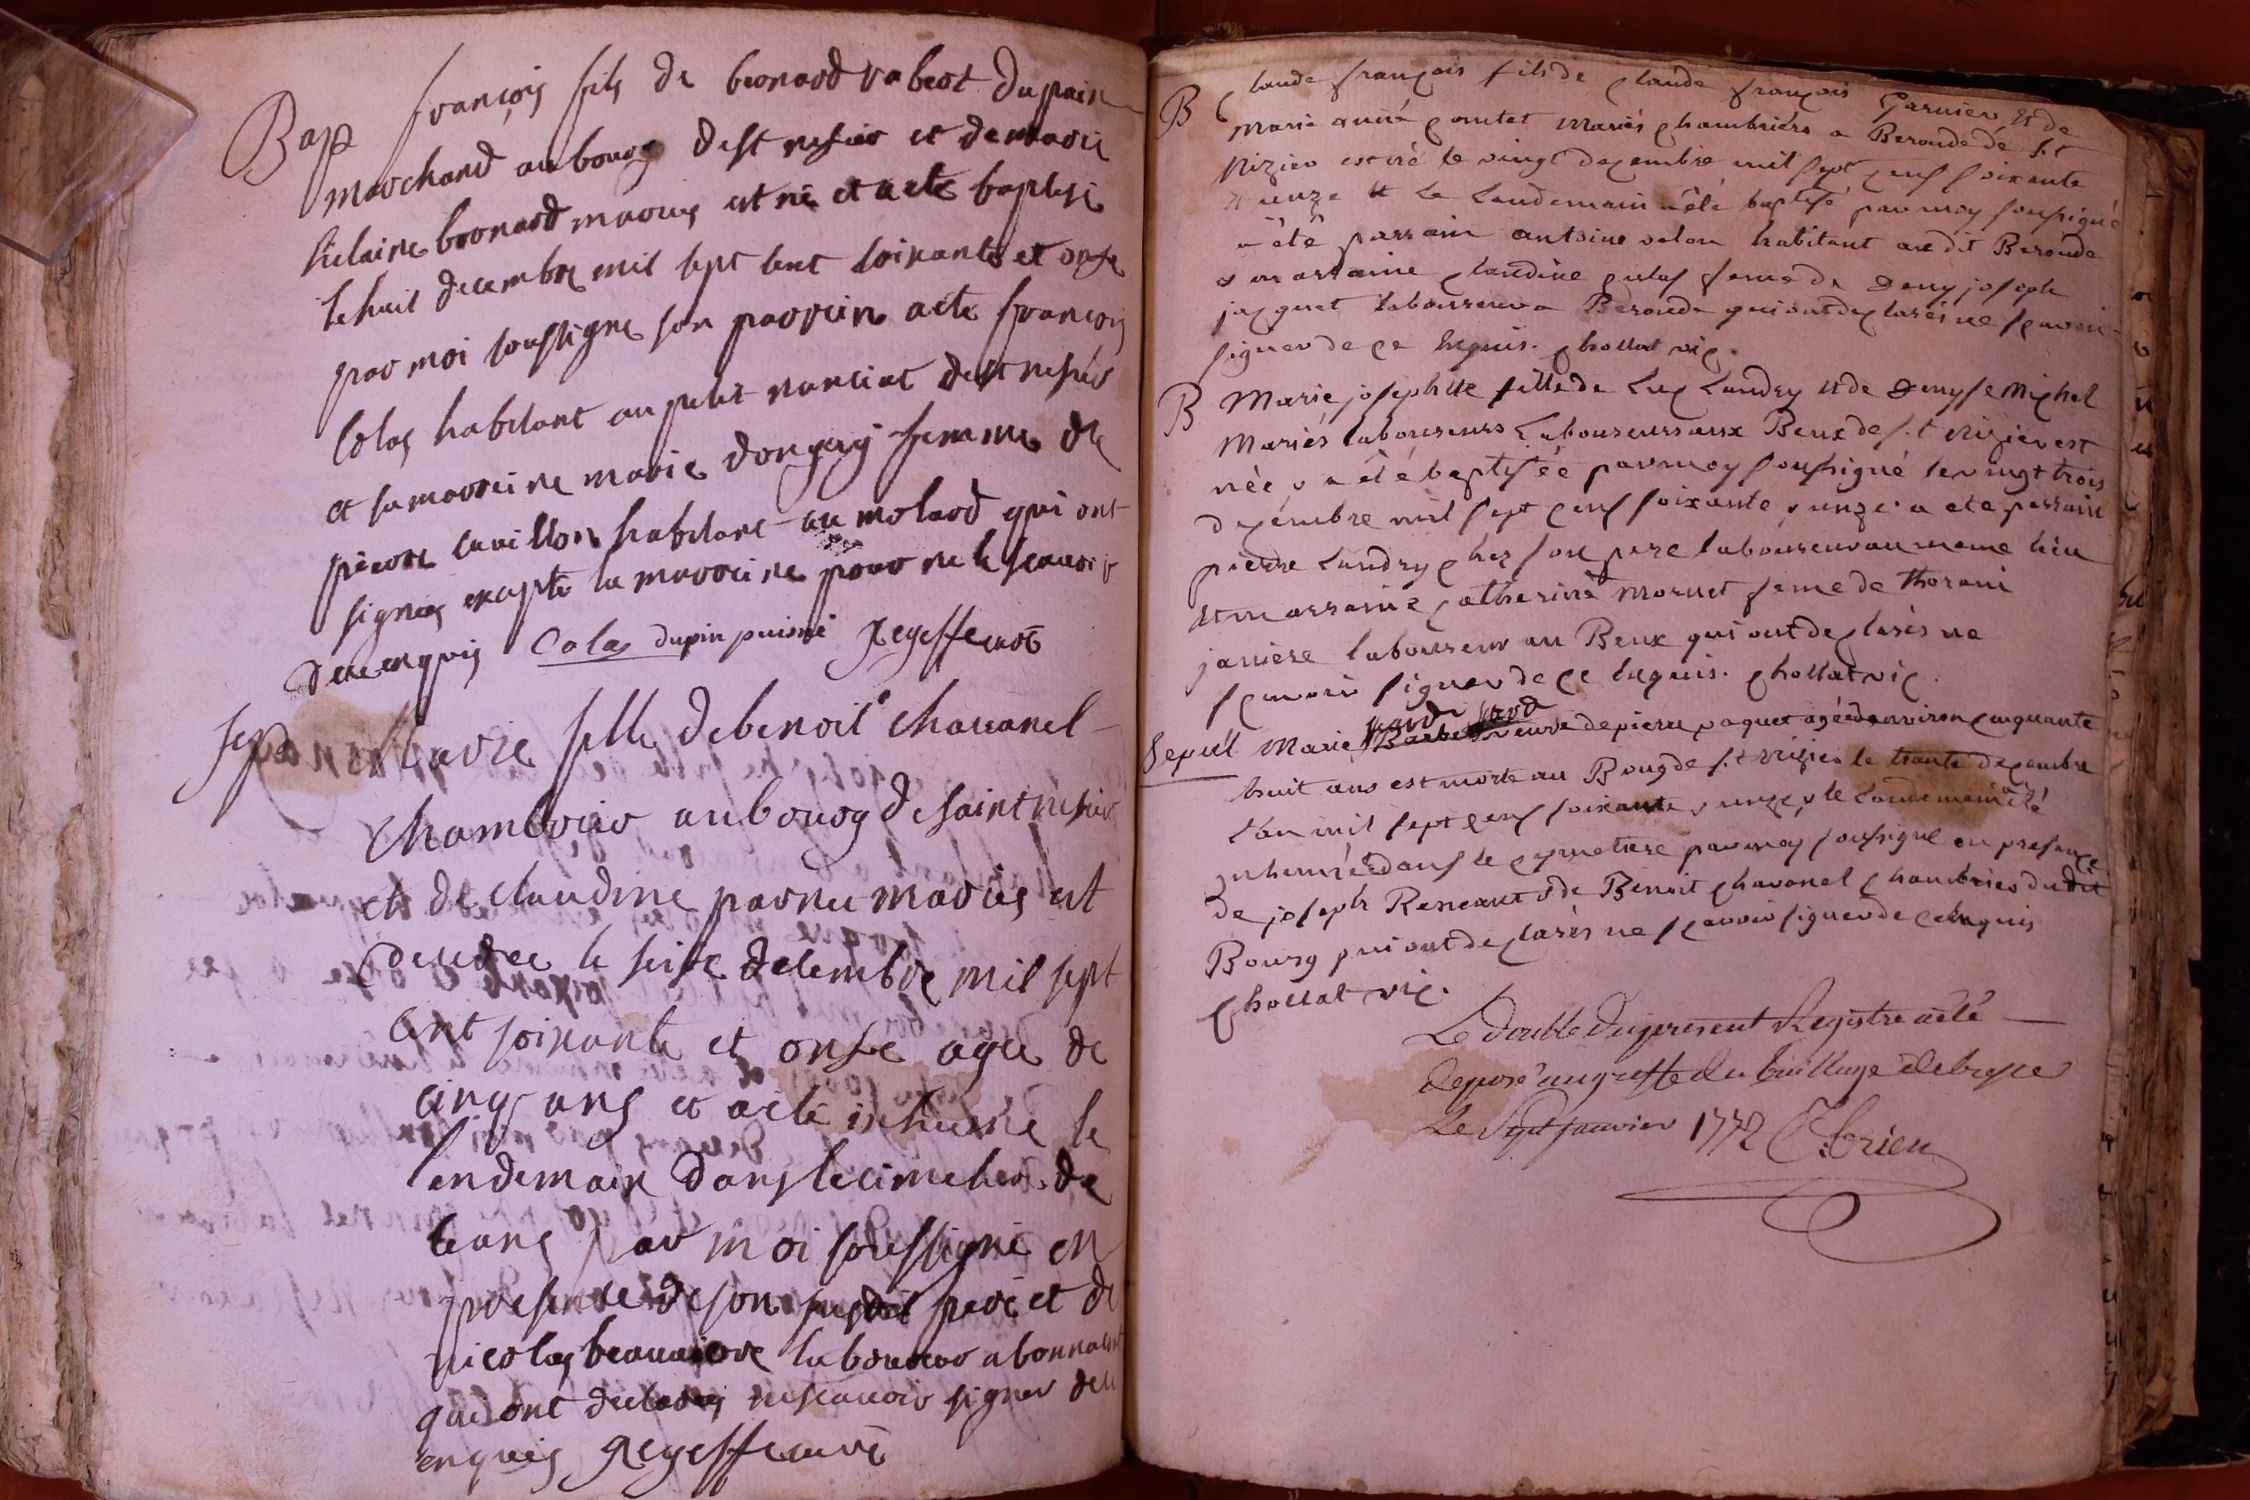 Bap françois fils de bernard rabert Dupain
marchand au bourg dest nesier et demarie
hilaire bernard maries est né et a ete baptisé
le huit decembre mil sept cent soixante et onse
par moi soussigné son parrein a ete françois
Colas habitant au petit varciat dest nesier
et sa marreine marie donguy femme de
pierre cavillon habitant au molard qui ont
signes excepté la marreine pour ne le scavoir
De ce enquis Colas dupin puisné
Sep Marie fille debenoit chavanel
Chambrier au bourg de saint nesier
et de claudine parnu maries est
decedee le seise decembre mil sept
cent soixante et onse agee de
cinq ans et a ete inhumé le
lendemain dans le cimetier de
ceans par moi soussigné en
presence de son susdit pere et de
nicolas labourer abonnacourt
qui ont declares nescavoir signer de ce
enquis
B Claude françois fils de Claude françois Garnier et de
Marie comtet Mariés chambriérs a Beroude dé s.t
Nizier est né le vingt decembre mil sept cens soixante
& unze & Le Lendemain a été baptisé par moy sousigné
a été parrain antoine velon habitant au dit Beroude
& marraine claudine culas feme de Deny joseph
jacquet laboureur a Beroude qui ont declarés ne scavoir
signer de ce enquis. chollat vic.
B Marie josephtte fille de Luc Landry et de Denyse Michel
Mariés laboureurs Laboureurs aux Beux de s.t Nizier est
née & a été baptisée par moy sousigné le vingt trois
decembre mil sept cens soixante & unze. a ete parrain
pierre Landry chez son pere laboureur au meme lieu
et marraine catherine Moruet feme de thoreni
janiere laboureur au Beux qui ont declarés ne
scavoir signer de ce enquis. chollat vic.
Sepul. Marie veuve de pierre paquet agée denviron cinquante
huit ans est morte au Bougde s.t Nizier le trante decembre
l'an mil sept cens soixante & unze, & le Lendemain a été
inhumée dans le cymetiere par moy sousigné en presence
de joseph Reneaut & de Benoit chavanel chambrier du dit
Bourg qui ont declarés ne scavoir signer de ce enquis
chollat vic.
Le double du present Registre a été
deposé au greffe du bailliage de bresse
Le Sept janvier 1772